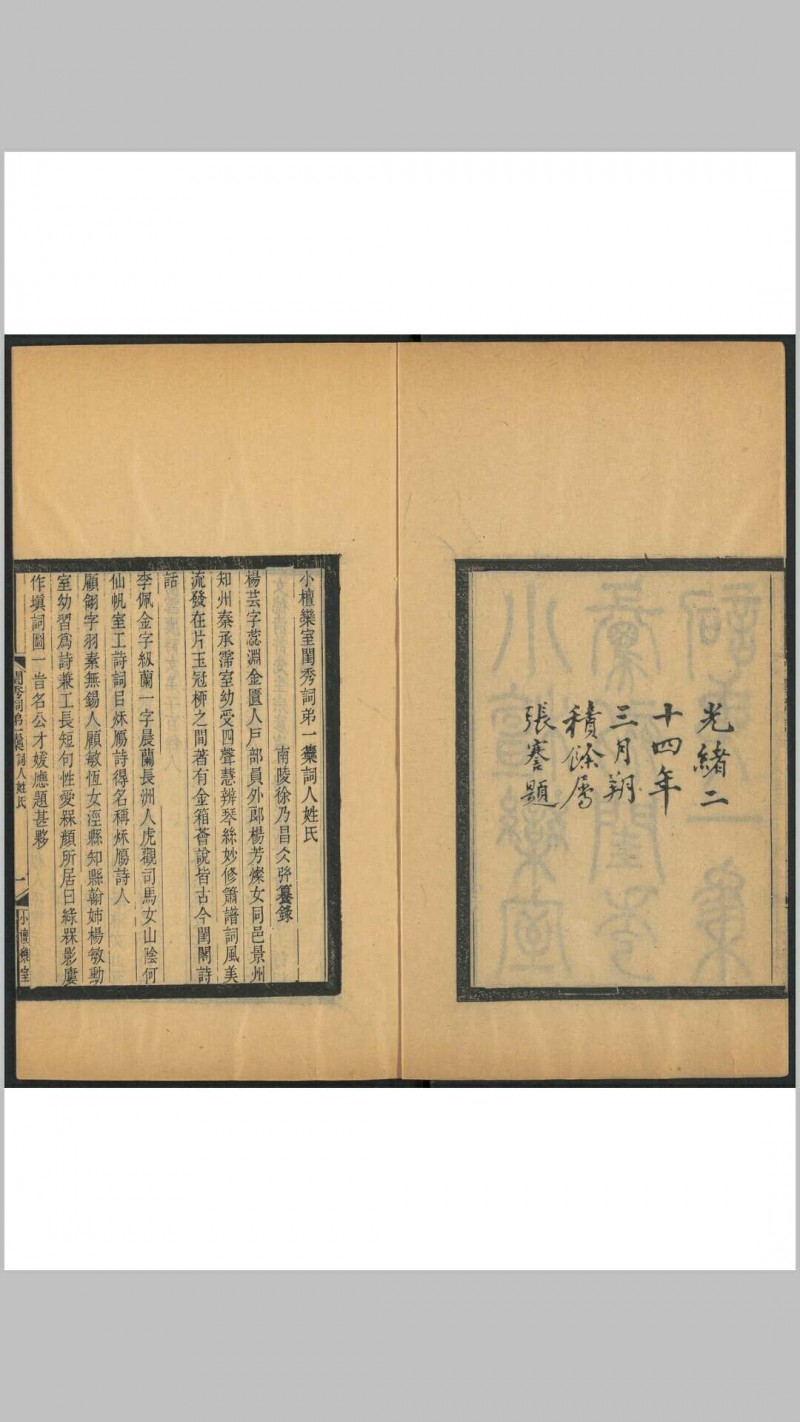 光緒二
十四年
三月朔
積餘屬
張謇題
小檀欒室閨秀詞弟一集詞人姓氏
南陵徐乃昌仌弜籑錄
楊芸字蕊淵金匱人戶部員外郎楊芳燦女同邑景州
知州秦承霈室幼受四聲慧辨琴絲妙修簫譜詞風美
流發在片玉冠栁之間著有金箱薈說皆古今閨閣詩
話
李佩金字紉蘭一字晨蘭長洲人虎觀司馬女山陰何
仙帆室工詩詞目秌鴈詩得名稱秌鴈詩人
顧翎字羽素無錫人顧敏恆女涇縣知縣翰姊楊敏勳
室幼習為詩兼工長短句性愛槑顏所居曰綠槑影廔
作塡詞圖一旹名公才媛應題甚夥
閨秀詞弟一集詞人姓氏
一
小檀欒室